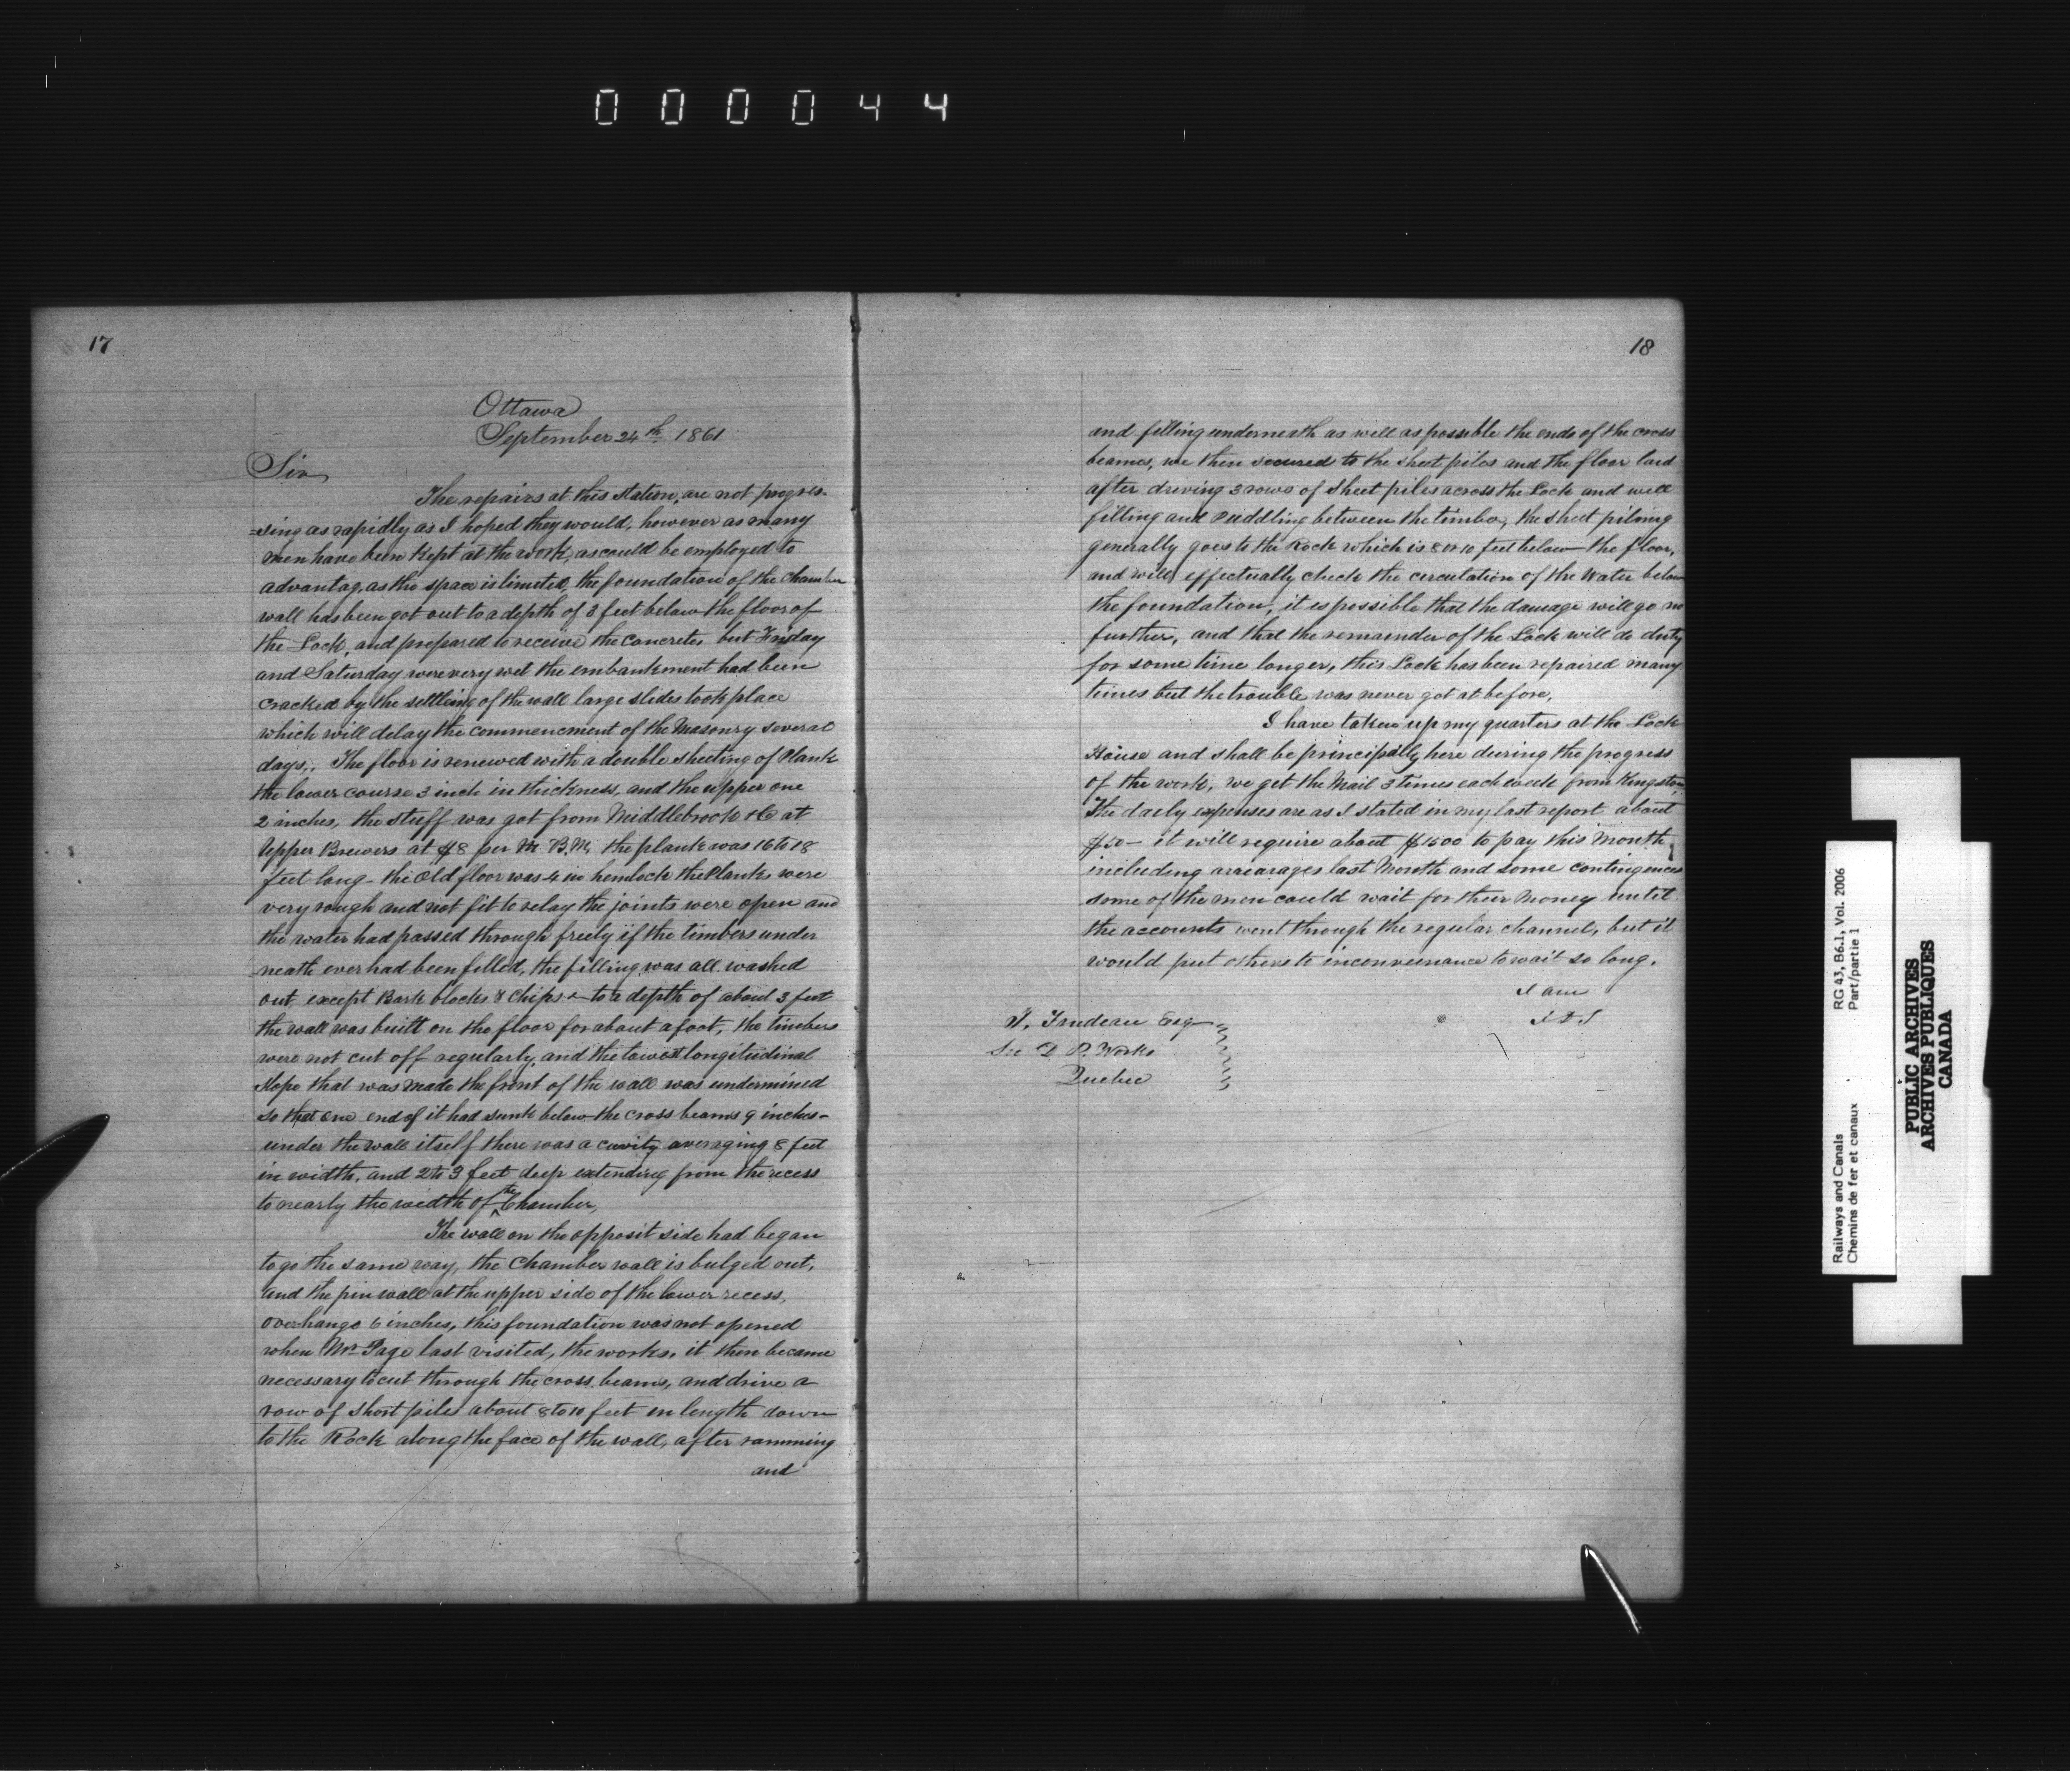 000044
17
Ottawa
September 24th 1861
Sir
The repairs at this station, are not progres-
=sing as rapidly as I hoped they would, however as many
men have been kept at the work, as could be employed to
advantag, as the space is limited, the foundation of the Chamber
wall has been got out to a depth of 3 feet below the floor of
the Lock, and prepared to receive the concrete, but Friday
and Saturday were very wet the embankment had been
cracked by the settleing of the wall large slides took place
which will delay the commencment of the Masonry several
days,. The floor is renewed with a double sheeting of Plank
the lower course 3 inch in thickness, and the upper one
2 inches, the stuff was got from Middlebrook & Co at
Upper Brewers at $8 per M B.M, the plank was 16 to 18
feet long - the old floor was 4 in hemlock the Planks were
very rough and not fit to relay the joints were open and
the water had passed through freely if the timbers under
neath ever had been filled, the filling was all washed
out except Bark blocks & Chips - to a depth of about 3 feet
the wall was built on the floor for about a foot, the timbers
were not cut off regularly, and the lowest longitudinal
slope that was made the front of the wall was undermined
so that one end of it had sunk below the cross beams 9 inches -
under the wall itself there was a cavity averaging 8 feet
in width, and 2 to 3 feet deep extending from the recess
to nearly the width of the Chamber,
The wall on the opposit side had began
to go the same way, the Chamber wall is bulged out,
and the pin wall at the upper side of the lower recess,
overhangs 6 inches, this foundation was not opened
when Mr Page last visited, the works, it then became
necessary to cut through the cross beams, and drive a
row of short piles about 8 to 10 feet in length down
to the Rock along the face of the wall, after ramming
and
18
and filling underneath as well as possible the ends of the cross
beames, we then secured to the sheet piles and the floor laid
after driving 3 rows of sheet piles across the Lock and well
filling and Puddling between the timber, the sheet pileing
generally goes to the Rock which is 8 or 10 feet below the floor,
and will effectually check the circulation of the Water below
the foundation, it is possible that the damage will go no
further, and that the remainder of the Lock will do duty
for some time longer, this Lock has been repaired many
times but the trouble was never got at before,
I have taken up my quarters at the Lock
House and shall be principally here during the progress
of the work, we get the Mail 3 times each week from Kingston
The daily expenses are as I stated in my last report about
$50 - it will require about $1500 to pay this Month
including arrearages last Month and some Contingences
some of the men could wait for their Money until
the accounts went through the regular channel, but it
would put others to inconvenance to wait so long.
I am
T. Trudeau Esq
Sec D P. Works
Quebec
Railways and Canals
Chemins de fer et canaux
RG 43, B6.1, Vol. 2006
Part/partie 1
PUBLIC ARCHIVES
ARCHIVES PUBLIQUES
CANADA